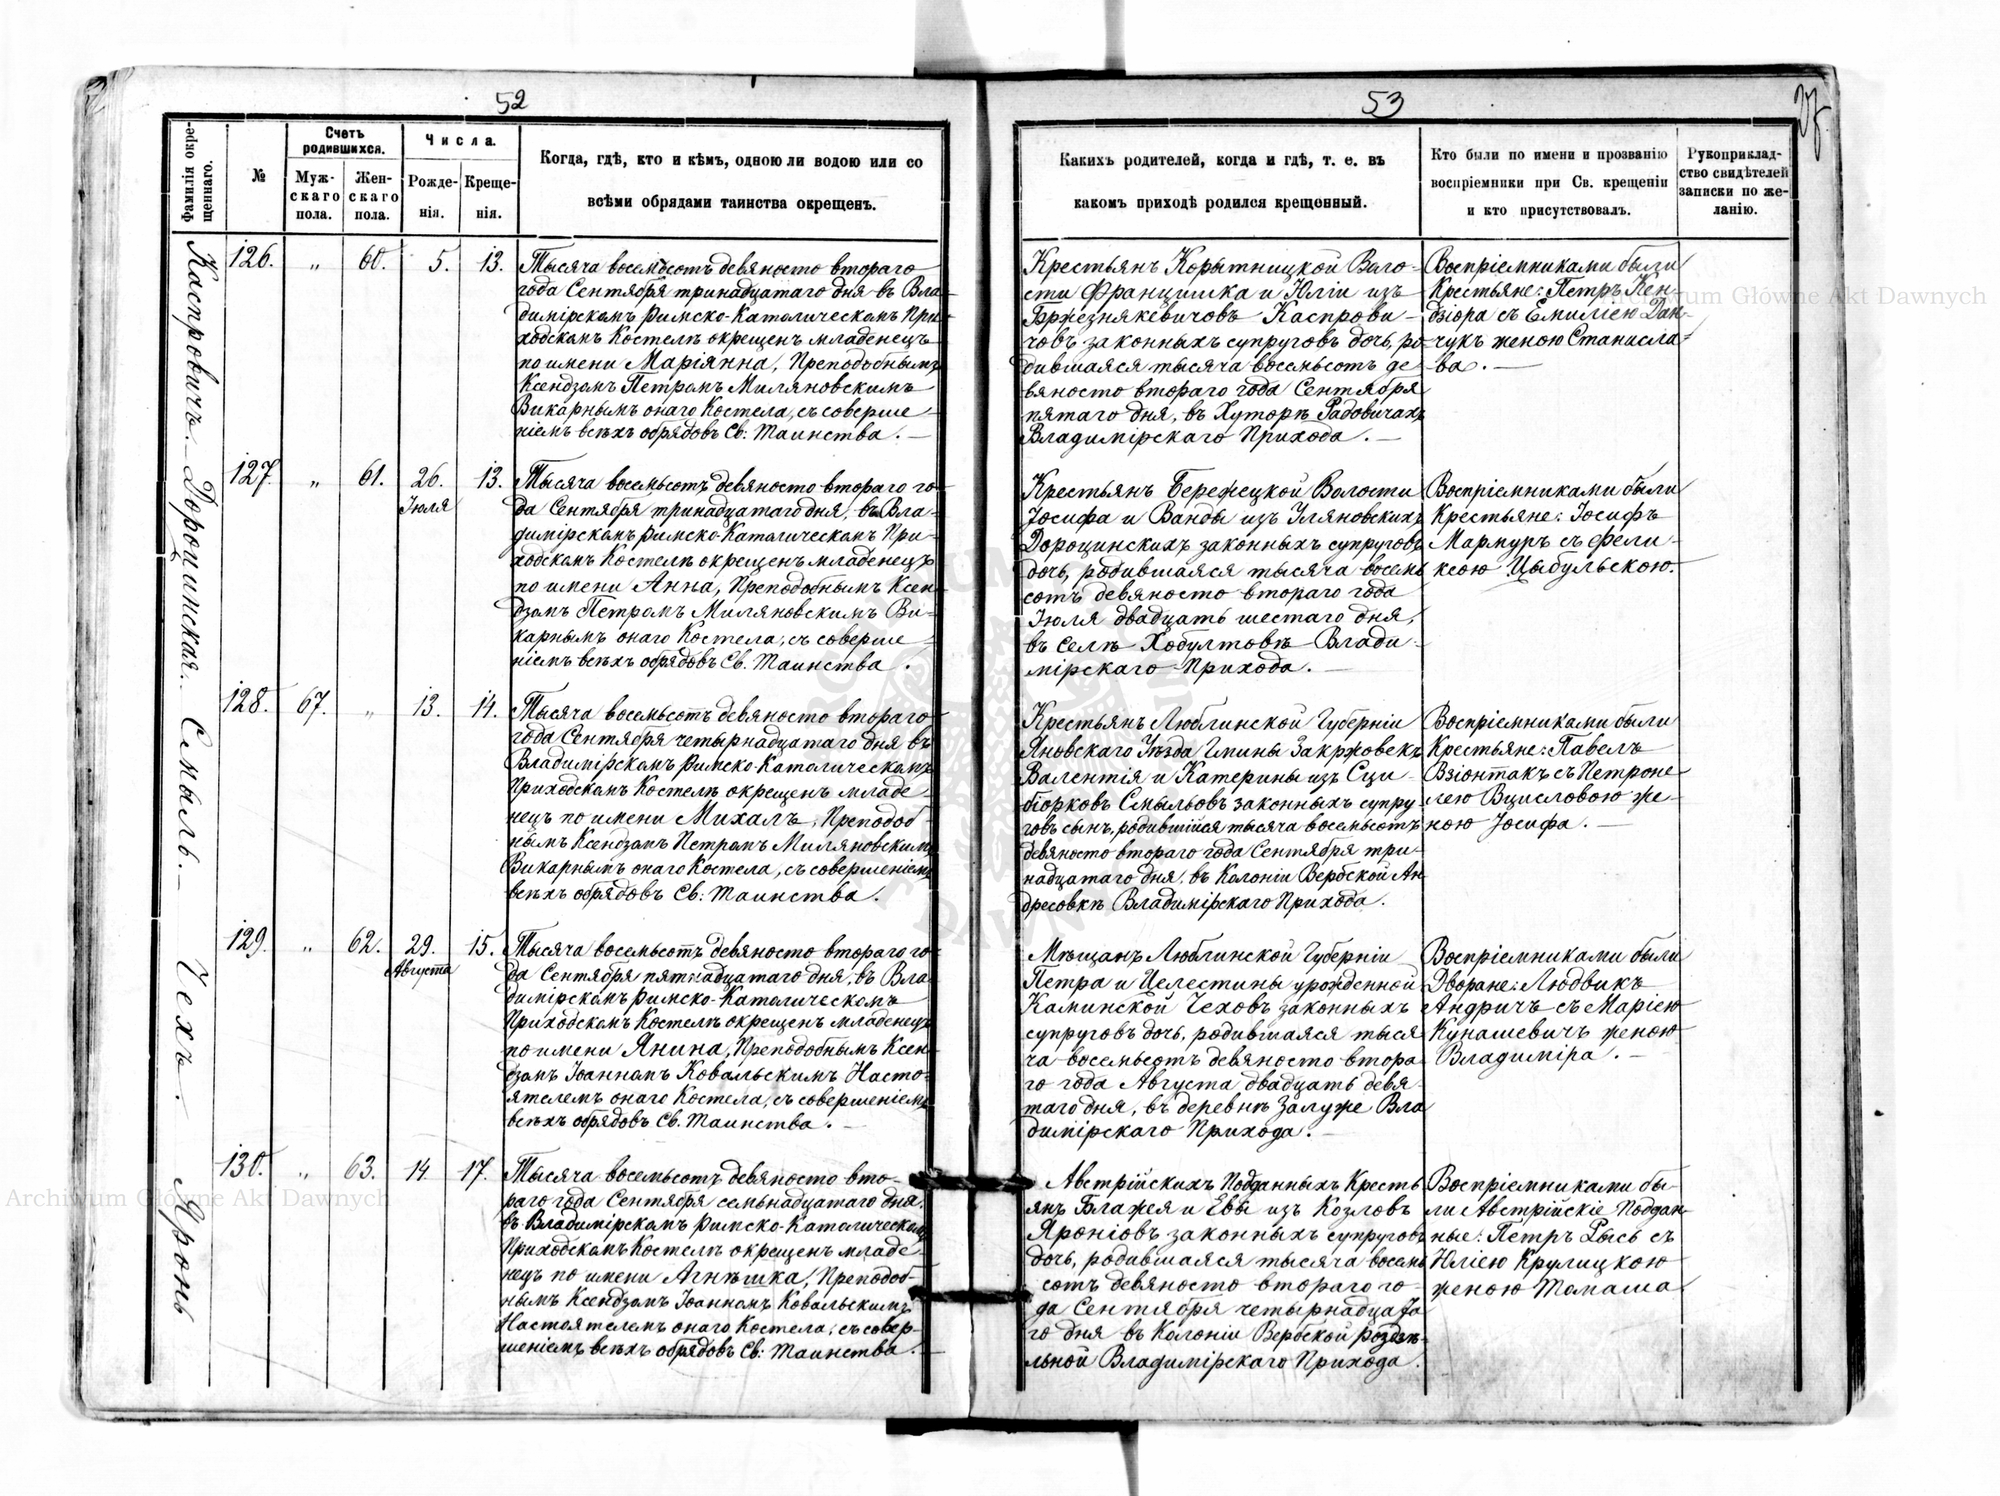 52
Фамилія окре-
щеннаго.
№
Счетъ
родившихся.
Муж-
скаго
пола.
Жен-
скаго
пола.
Числа.
Рожде-
нія.
Креще-
нія.
Когда, гдѣ, кто и кѣмъ, одною ли водою или со
всѣми обрядами таинства окрещенъ.
Каспровичъ.—
126.
„
60.
5.
13.
Тысяча восемьсотъ девяносто втораго
года Сентября тринадцатаго дня въ Вла-
димірскомъ Римско-Католическомъ При-
ходскомъ Костелѣ окрещенъ младенецъ
по имени Маріянна, Преподобнымъ
Ксендзомъ Петромъ Миляновскимъ
Викарнымъ онаго Костела, съ соверше-
ніемъ всѣхъ обрядовъ Св: Таинства.—
Дороцинская.
127.
„
61.
26.
Іюля
13.
Тысяча восемьсотъ девяносто втораго го-
да Сентября тринадцатаго дня, въ Вла-
димірскомъ Римско-Католическомъ При-
ходскомъ Костелѣ окрещенъ младенецъ
по имени Анна, Преподобнымъ Ксен-
дзомъ Петромъ Миляновскимъ Ви-
карнымъ онаго Костела, съ соверше-
ніемъ всѣхъ обрядовъ Св. Таинства.
Смыль.—
128.
67.
„
13.
14.
Тысяча восемьсотъ девяносто втораго
года Сентября четырнадцатаго дня въ
Владимірскомъ Римско-Католическомъ
Приходскомъ Костелѣ окрещенъ младе-
нецъ по имени Михалъ, Преподоб-
нымъ Ксендзомъ Петромъ Миляновскимъ
Викарнымъ онаго Костела, съ совершеніемъ
всѣхъ обрядовъ Св: Таинства.
Чехъ.
129.
„
62.
29.
Августа
15.
Тысяча восемьсотъ девяносто втораго го-
да Сентября пятнадцатаго дня, въ Вла-
димірскомъ Римско-Католическомъ
Приходскомъ Костелѣ окрещенъ младенецъ
по имени Янина, Преподобнымъ Ксен-
дзомъ Іоанномъ Ковальскимъ Насто-
ятелемъ онаго Костела, съ совершеніемъ
всѣхъ обрядовъ Св. Таинства.—
Яронь
130.
„
63.
14.
17.
Тысяча восемьсотъ девяносто вто-
раго года Сентября семьнадцатаго дня.
въ Владимірскомъ Римско-Католическомъ
Приходскомъ Костелѣ окрещенъ младе-
нецъ по имени Агнѣшка, Преподоб-
нымъ Ксендзомъ Іоанномъ Ковальскимъ
Настоятелемъ онаго Костела, съ совер-
шеніемъ всѣхъ обрядовъ Св: Таинства.—
53
Какихъ родителей, когда и гдѣ, т. е. въ
какомъ приходѣ родился крещенный.
Кто были по имени и прозванію
воспріемники при Св. крещеніи
и кто присутствовалъ.
Рукоприклад-
ство свидѣтелей
записки по же-
ланію.
Крестьянъ Корытницкой Воло-
сти Францишка и Юліи изъ
Бржезнякевичовъ Каспрови-
човъ законныхъ супруговъ дочь, ро-
дившаяся тысяча восемьсотъ де-
вяносто втораго года Сентября
пятаго дня, въ Хуторѣ Радовичахъ
Владимірскаго Прихода.—
Воспріемниками были
Крестьяне: Петръ Кен-
дзіора съ Емиліею Дан-
чукъ женою Станисла-
ва.—
Крестьянъ Бережецкой Волости
Іосифа и Ванды изъ Уляновскихъ
Дороцинскихъ законныхъ супруговъ
дочь, родившаяся тысяча восемь
сотъ девяносто втораго года
Іюля двадцать шестаго дня,
въ селѣ Хоболтовѣ Влади-
мірскаго Прихода.—
Воспріемниками были
Крестьяне: Іосифъ
Мармуръ съ Фели-
ксою Цыбульскою.
Крестьянъ Люблинской Губерніи
Яновскаго Уѣзда Гмины Закржовекъ
Валентія и Катерины изъ Сци-
біорковъ Смыльовъ законныхъ супру-
говъ сынъ, родившійся тысяча восемьсотъ
девяносто втораго года Сентября три-
надцатаго дня, въ Колоніи Вербской Ан-
дресовкѣ Владимірскаго Прихода.
Воспріемниками были
Крестьяне: Павелъ
Взіонтакъ съ Петроне-
лею Вцисловою же-
ною Іосифа.—
Мѣщанъ Люблинской Губерніи
Петра и Целестины урожденной
Каминской Чеховъ законныхъ
супруговъ дочь, родившаяся тыся
ча восемьсотъ девяносто втора-
го года Августа двадцать девя-
таго дня, въ деревнѣ Залуже Вла
димірскаго Прихода.—
Воспріемниками были
Дворяне: Людвикъ
Андричъ съ Маріею
Кунашевичъ женою
Владиміра.—
Австрійскихъ Подданныхъ Кресть
янъ Блажея и Евы изъ Козловъ
Яроніовъ законныхъ супруговъ
дочь, родившаяся тысяча восемь
сотъ девяносто втораго го-
да Сентября четырнадцата
го дня въ Колоніи Вербской роздѣ-
льной Владимірскаго Прихода.
Воспріемниками бы-
ли Австрійскіе Поддан-
ные: Петръ Рысь съ
Юліею Крулицкою
женою Томаша
Archiwum Główne Akt Dawnych
Archiwum Główne Akt Dawnych